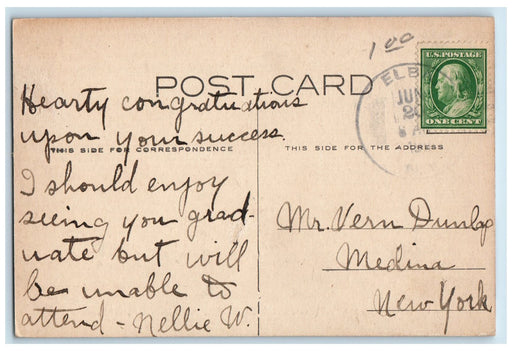 1 00
U.S. POSTAGE
ELB
POST CARD
JUN
ONE CENT
Hearty congratuations
upon your success.
THIS SIDE FOR CORRESPONDENCE
THIS SIDE FOR THE ADDRESS
I should enjoy
seeing you grad-
uate but will
be unable to
attend - Nellie W.
Mr. Vern Dunlap
Medina
New York